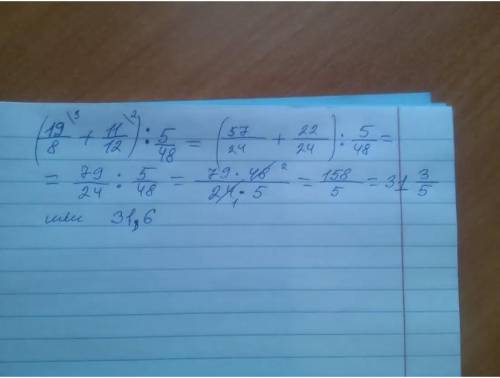 (19/8 \3 + 11/12 \2) : 5/48 = (57/24 + 22/24) : 5/48 =
= 79/24 : 5/48 = 79 · 48 2 / 24 1 · 5 = 158/5 = 31 3/5
или 31,6